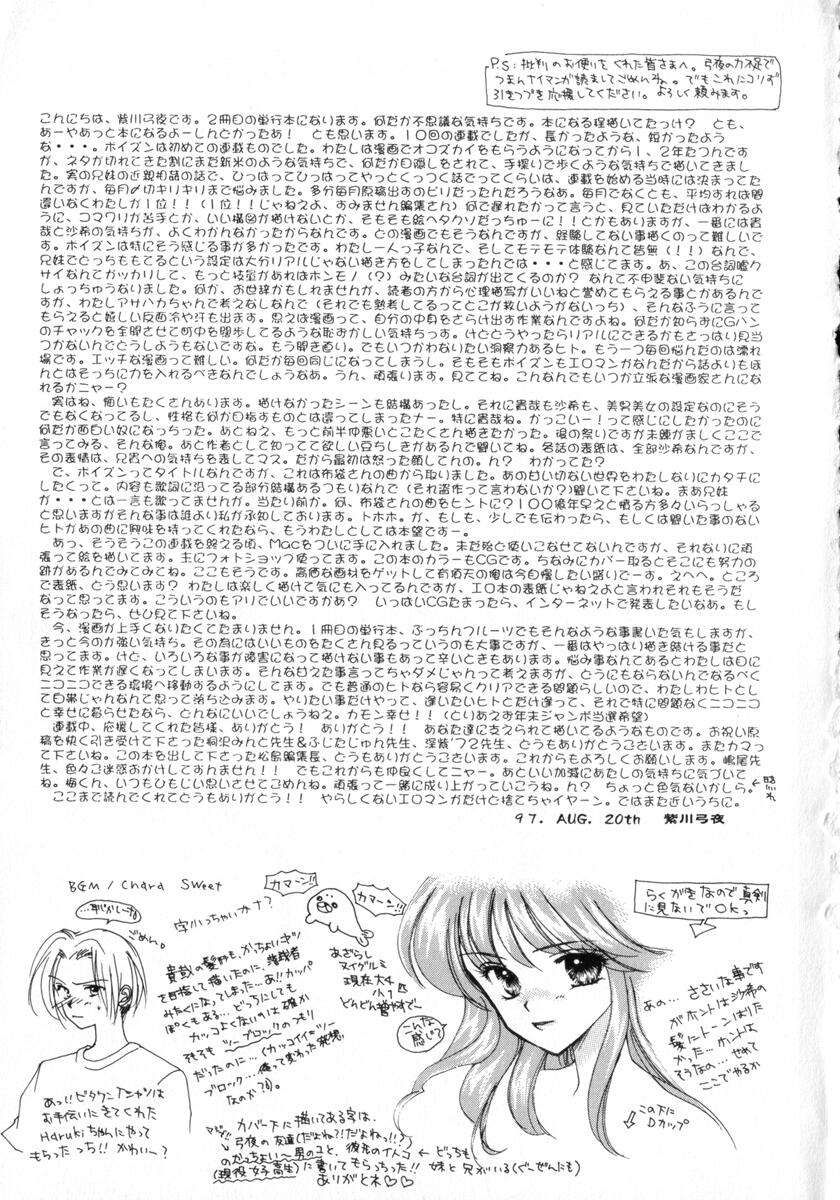 P.S:批判のお便りをくれた皆さまへ。弓夜の力不足で
つまんナイマンガ読ましてごめんね。でもこれにコリず
引きつづき応援してください。よろしく頼みます。
こんにちは、紫川弓夜です。2冊目の単行本になります。何だか不思議な気持ちです。本になる程描いてたっけ? とも、
あーやあっと本になるよーしんどかったあ! とも思います。10回の連載でしたが、長かったような、短かったよう
な・・・。ポイズンは初めての連載ものでした。わたしは漫画でオコズカイをもらうようになってから1、2年たつんです
が、ネタが切れてきた割にまだ新米のような気持ちで、何だか目隠しをされて、手探りで歩くような気持ちで描いてきまし
た。実の兄妹の近親相姦の話で、ひっぱってひっぱってやっとくっつく話でってくらいは、連載を始める当時には決まってた
んですが、毎月〆切キリキリまで悩みました。多分毎月原稿出すのビリだったんだろうなあ。毎月でなくとも、平均すれば間
違いなくわたしが1位!!(1位!!じゃねえよ、すみません編集さん)何で遅れたかって言うと、見ていただければわかるよ
うに、コマワリが苦手とか、いい構図が描けないとか、そもそも絵ヘタクソだっちゅーに!!とかもありますが、一番には貴
哉と沙希の気持ちが、よくわかんなかったからなんです。どの漫画でもそうなんですが、経験してない事描くのって難しいで
す。ポイズンは特にそう感じる事が多かったです。わたし一人っ子なんで、そしてモテモテ体験なんて皆無(!!)なんで、
兄妹でどっちもモテるという設定は大分リアルじゃない描き方をしてしまったんでは・・・と感じてます。あ、この台詞嘘ク
サイなんてガッカリして、もっと技量があればホンモノ(?)みたいな台詞が出てくるのか? なんて不甲斐ない気持ちに
しょっちゅうなりました。何か、お世辞かもしれませんが、読者の方から心理描写がいいねと誉めてもらえる事とかあるんで
すが、わたしアサハカちゃんで考えなしなんで(それでも熟考してるってとこが救いようがないっち)、そんなふうに言って
もらえると嬉しい反面冷や汗も出ます。思えば漫画って、自分の中身をさらけ出す作業なんですよね。何だか知らずにGパン
のチャックを全開させて町中を闊歩してるような恥ずかしい気持ちっす。けどどうやったらリアルにできるかもさっぱり見当
つかないんでどうしようもないですな。もう開き直り。でもいつかそなわりたい洞察力あるヒト。もう一つ毎回悩んだのは濡れ
場です。エッチな漫画って難しい。何だか毎回同じになってしまうし。そもそもポイズンもエロマンガなんだから話よりもほ
んとはそっちに力を入れるべきなんでしょうなあ。うん、頑張ります。見ててね。こんなんでもいつか立派な漫画家さんにな
れるかニャー?
実はね、悔いもたくさんあります。描けなかったシーンも結構あったし。それに貴哉も沙希も、美男美女の設定なのにそう
でもなくなってるし、性格も何か目指すものとは違ってしまったナー。特に貴哉ね。かっこいー!って感じにしたかったのに
何だか面白い奴になっちった。あとねえ、もっと前半仲悪いとこたくさん描きたかった。後の祭りですが未練がましくここで
言ってみる、そんな俺。あと作者として知ってて欲しい豆ちしきがあるんで聞いてね。各話の表紙は、全部沙希なんですが、
その表情は、兄貴への気持ちを表してマス。だから最初は怒った顔してんの。ん? わかってた?
で、ポイズンってタイトルなんですが、これは布袋さんの曲から取りました。あの甘い切ない世界をわたしないにカタチに
したくって。内容も歌詞に沿ってる部分結構あるつもりなんで(それ盗作って言わないか?)聞いて下さいね。まあ兄妹
が・・・とは一言も歌ってませんが。当たり前か。何、布袋さんの曲をヒントに?100億年早えと憤る方多々いらっしゃる
と思いますがそんな事は誰より私が承知しております。トホホ。が、もしも、少しでも伝わったら、もしくは聞いた事のない
ヒトがあの曲に興味を持ってくれたなら、もうわたしとしては本望ですー。
あっ、そうそうこの連載を終える頃、Macをついに手に入れました。未だ殆ど使いこなせてないんですが、それなりに頑
張って絵を描いてます。主にフォトショップ使ってます。この本のカラーもCGです。ちなみにカバー取るとそこにも努力の
跡があるんでみてみてね。ここもそうです。高価な画材をゲットして有頂天の俺は今自慢したい盛りでーす。えへへ。ところ
で表紙、どう思います? わたしは楽しく描けて気にも入ってるんですが、エロ本の表紙じゃねえよと言われそれもそうだ
なって思ってます。こういうのもアリでいいですかあ? いっぱいCGたまったら、インターネットで発表したいなあ。もし
そうなったら、ぜひ見て下さいね。
今、漫画が上手くなりたくてたまりません。1冊目の単行本、ぷっちんフルーツでもそんなような事書いた気もしますが、
きっと今のが強い気持ち。その為にはいいものをたくさん見るっていうのも大事ですが、一番はやっぱい描き続ける事だと
思ってます。けど、いろいろな事が障害になって描けない事もあって辛いときもあります。悩み事なんてあるとわたしは目に
見えて作業が遅くなってしまいます。そんな甘えた事言ってちゃダメじゃんって考えますが、どうにもならないんでなるべく
ニコニコできる環境へ移動するようにしてます。でも普通のヒトなら容易くクリアできる問題らしいので、わたしわヒトとし
て白帯じゃんなんて思って落ち込みます。やりたい事だけやって、逢いたいヒトとだけ逢って、それで特に問題なくニコニコ
と幸せに暮らせたなら、どんなにいいでしょうねえ。カモン幸せ!!(とりあえず年末ジャンボ当選希望)
連載中、応援してくれた皆様、ありがとう! ありがとう!! あなた達に支えられて描いてるようなものです。お祝い原
稿を快く引き受けて下さった桐沢みんと先生&ふじたじゅん先生、淫紫'72先生、どうもありがとうございます。またカマっ
て下さいね。この本を出して下さった松島編集長、どうもありがとうございます。これからもよろしくお願いします。嶋尾先
生、色々ご迷惑おかけしてすんません!! でもこれからも仲良くしてニャー。あといい加減にあたしの気持ちに気づいて
ね。梅くん、いつもひもじい思いさせてごめんね。頑張って一緒に成り上がっていこうね。ん? ちょっと色気ないかしら。
ここまで読んでくれてどうもありがとう!! やらしくないエロマンガだけど捨てちゃイヤーン。ではまた近いうちに。
97. AUG. 20th 紫川弓夜
BGM/Chara Sweet
字小っちゃいかナ?
カマーン!!
カマーン!!
らくがきなので真剣
に見ないでOKっ
…恥ずかしーな
ごめん。
貴哉の髪形も、かっちょいギリ
を目指して描いたのに、落武者
みたくになってしまった…あ!!カッパ
ぽくもある…どっちにしても
カッコよくないのは確か
そもそもツーブロックのつもり
だったのに…(カッコイイ=ツー
ブロック…俺って変わった発想
なのか?)。
あざらし
ヌイグルミ
現在大4
小1匹
どんどん増やすでー
こんな
感じで
あの…ささいな事です
がホントは沙希の
髪にトーンはりた
かった…ホントは
そうなの…せめて
ここでやるか
この下に
Dカップ
あっ!!ピタワンTシャツは
お手伝いにきてくれた
Harukiちゃんにやって
もらったっち!!かわいー?
カバー下に描いてある字は、
弓夜の友達(だよね?!だよねっ!!?)
のかっちょい〜男のコと、彼氏のイトコ ← どっちも
(現役女子高生)に書いてもらっちった!! 妹と兄がいる(ぐーぜんにも)
ありがとネ♡♡